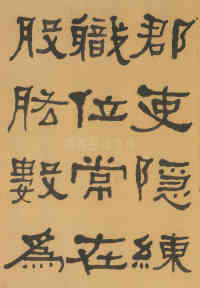 郡吏隱練
職位常在
股肱數為